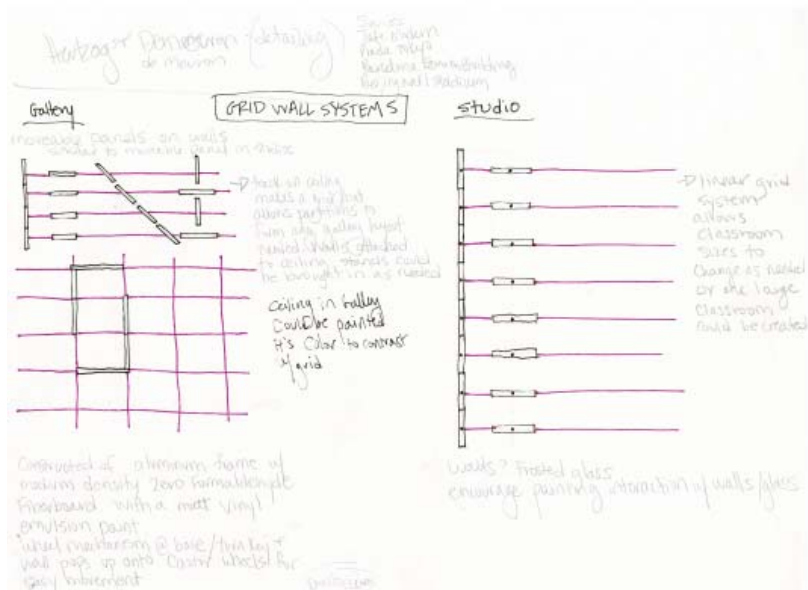 Herzog + Demeuron (detailing)
de meuron
Swiss
Tate modern
Prada Tokyo
Building
stadium
Gallery
GRID WALL SYSTEMS
studio
moveable panels on walls
similar to moveable panel on
track on ceiling
makes a grid that
allows partitions to
form any gallery layout
needed. attached
to ceiling, stands could
be brought in as needed
Ceiling in Gallery
Could be painted
it's Color to contrast
w/ grid
linear grid
system
allows
classroom
sizes to
change as needed
or one large
classroom
could be created
Constructed of aluminum frame w/
medium density zero formaldehyde
Fiberboard with a matt vinyl
emulsion paint
wheel mechanism @ base/turn key +
wall pops up onto Castor wheels for
easy movement
Walls? Frosted glass
encourage painting interaction w/ walls/glass